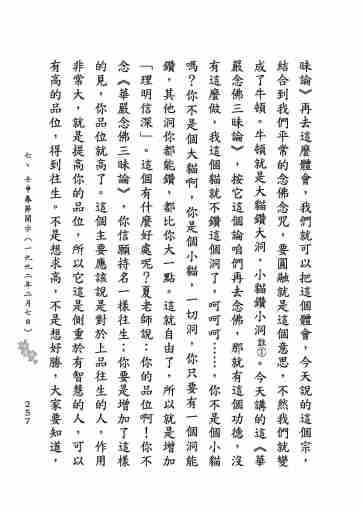 昧論》再去這麼體會，我們就可以把這個體會，今天說的這個宗，
結合到我們平常的念佛念咒。要圓融就是這個意思。不然我們就變
成了牛頓。牛頓就是大貓鑽大洞，小貓鑽小洞註①。今天講的這《華
嚴念佛三昧論》，按它這個論咱們再去念佛，那就有這個功德。沒
有這麼做，我這個貓就不鑽這個洞了，呵呵呵……。你不是個小貓
嗎？你不是個大貓啊，你是個小貓，一切洞，你只要有一個洞能
鑽，其他洞你都能鑽，都比你大一點。這就自由了，所以就是增加
「理明信深」。這個有什麼好處呢？夏老師說：你的品位啊！你不
念《華嚴念佛三昧論》，你信願持名一樣往生；你要是增加了這樣
的見，你品位就高了。這個主要應該說是對於上品往生的人，作用
非常大，就是提高你的品位，所以它這是側重於有智慧的人，可以
有高的品位，得到往生。不是想求高，不是想好勝，大家要知道，
七、壬申春節開示（一九九二年二月七日）
257